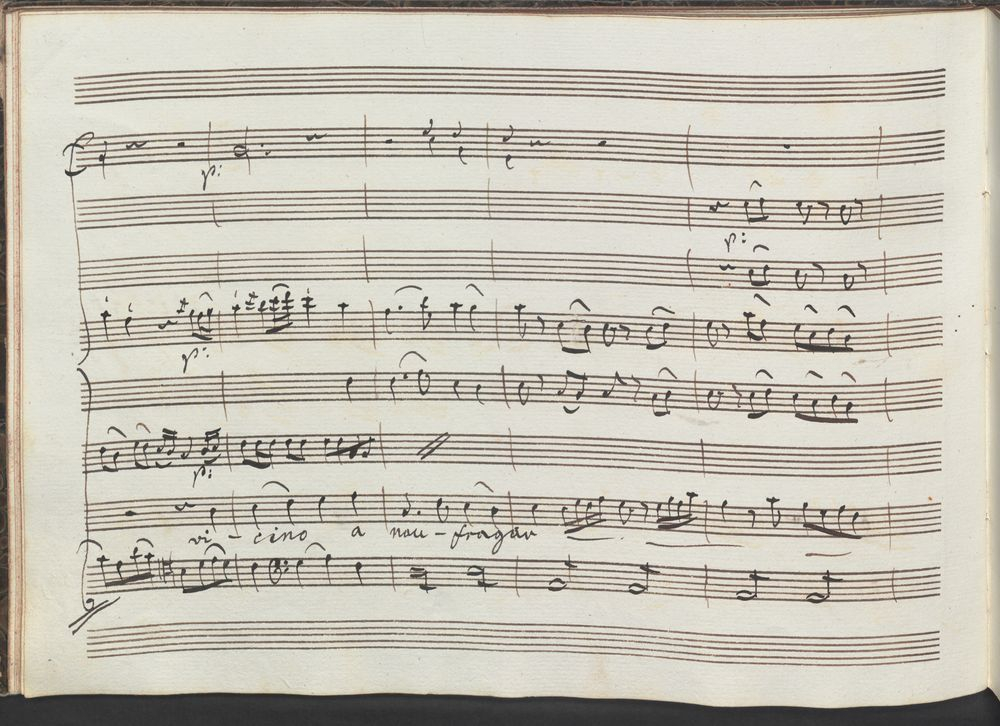 p:
p:
p:
p:
vi - cino a nau - fragar